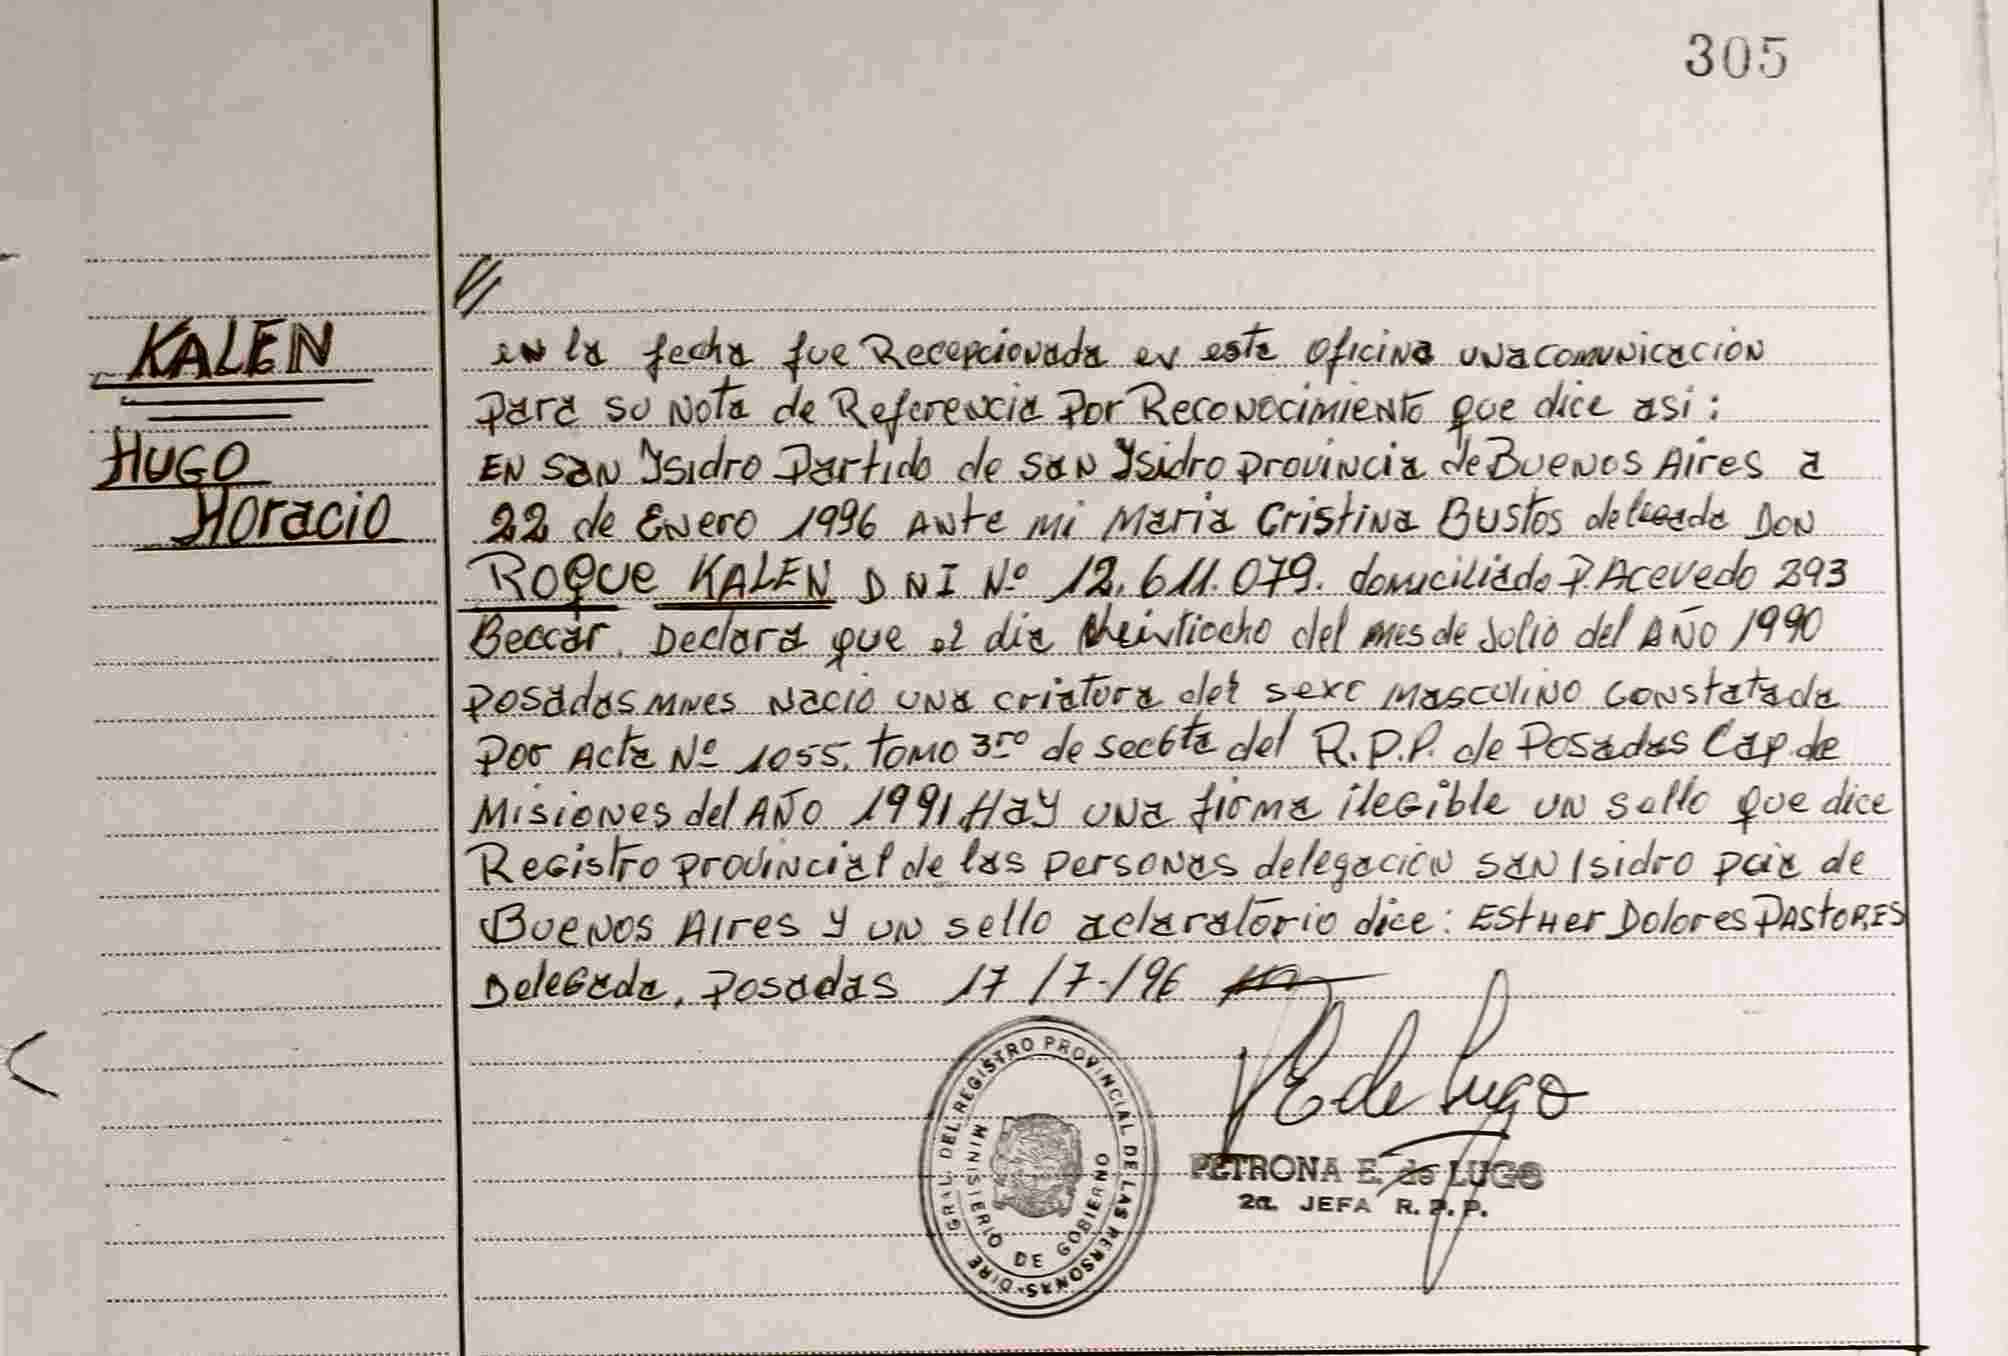 305
KALEN
HUGO
Horacio
//
en la fecha fue Recepcionada en este oficina una comunicación
Para su Nota de Referencia Por Reconocimiento que dice asi:
EN SAN Ysidro Partido de SAN Ysidro provincia de Buenos Aires a
22 de Enero 1996 Ante mi Maria Cristina Bustos delegada DON
ROQUE KALEN D N I Nº 12.611.079. domiciliado P. Acevedo 393
Beccar. Declara que el dia Veintiocho del mes de Julio del AÑO 1990
Posadas MNES Nació una criatura del sexo masculino constatada
Por Acta Nº 1055. tomo 3ro de sec6ta del R.P.P. de Posadas Cap. de
Misiones del AÑO 1991. HAY una firma ilegible un sello que dice
Registro provincial de las personas delegación SAN Isidro de
Buenos Aires y un sello aclaratorio dice: Esther Dolores PASTORES
Delegada. Posadas 17/7-/96
P E de Lugo
PETRONA E. de LUGO
2a. JEFA R.P.P.
DIRE GRAL DEL REGISTRO PROVINCIAL DE LAS PERSONAS-
MINISTERIO DE GOBIERNO